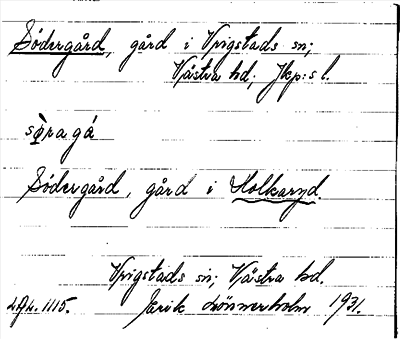 Södergård, gård i Vrigstads sn;
Västra hd; Jkp:s l.
sø̀ra gá
Södergård, gård i Holkaryd.
Vrigstads sn; Västra hd.
1115. Erik Lönnerholm 1931.